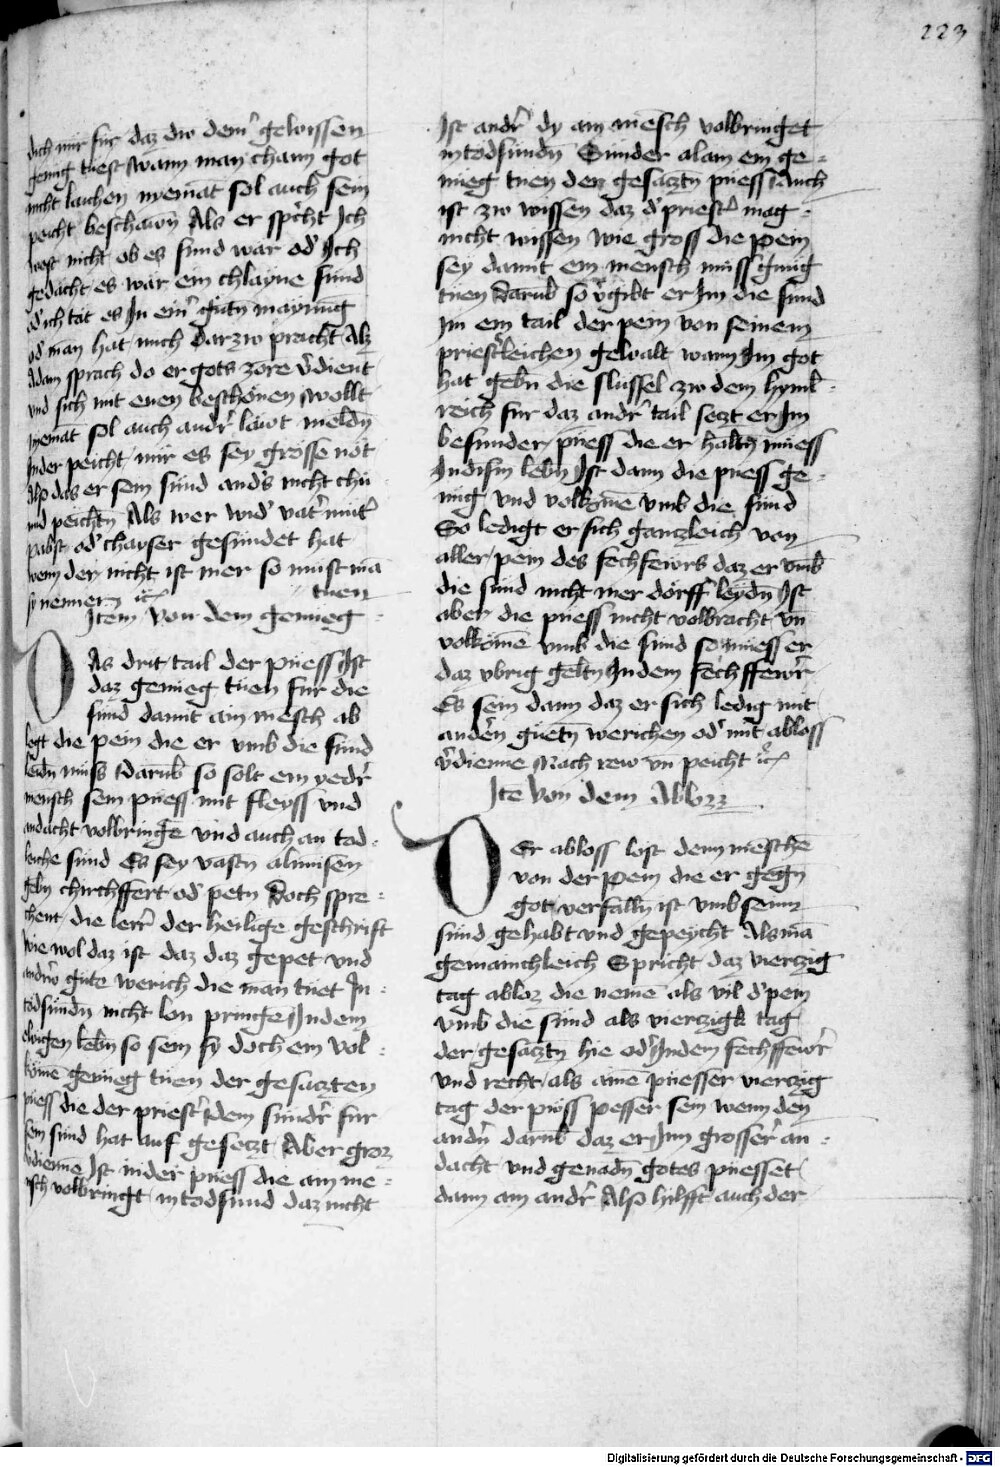 223
dich mir für daz div dem̄ gewissen
genüg tuest wann man chann got
nicht laichen nyemāt sol auch sein
peicht beschawn̄ Als er sp̄cht Ich
west nicht ob es sünd war od̄ Ich
gedacht es wär ein chlayne sünd
od̄ ich tät es In ein̄ gūtn̄ maynūg
od̄ man hat mich darzw pracht Alz
Adam sprach do er gots zorē v̄dient
vnd sich mit euen beschönen wollt
Nyemāt sol auch andr̄ läwt meldn̄
Inder peicht mir es sey grösse not
Also das er sein sünd and̄s nicht chü
nnd peichtn̄ Als wer wid̄ vat̄ mut̄
pabst od̄ chayser gesündet hat
wenn der nicht ist mer so must mā
sy nennen ꝛc̄ tuen
Item von dem genüeg
As drit tail der püess Ist
daz genüeg tuen für die
sünd damit ain mēsch ab
legt die pein die er vmb die sünd
leidn̄ müss Darub̄ so solt ein yedr̄
mensch sein püess mit fleyss vnd
andacht volbringē vnd auch an tad
leiche sünd Es sey vastn̄ almusen
gebn̄ chirchffert od̄ petn̄ Doch spre
chent die lerr̄ der heilige geschrift
Wie wol daz ist daz daz gepet vnd
andr̄w gute werich die man tuet In
todsündn̄ nicht lon pringē Indem
ewigen lebn̄ so sein sy doch ein vol
kömē genüeg tuen der gesatzten
püess die der priest̄ Idem sündr̄ für
sein sünd hat auf gesetzt Aber groz
v̄diennē Ist inder püess die ain me
nsch volbringt in todsund daz nicht
Ist andr̄ dy ain mēsch volbringet
in todsündn̄ Sünder alain ein ge
nüeg tuen der gesatztn̄ püess Auch
ist zw wissen daz d̄ priest̄ mag
nicht wissen wie gross die pein
sey damit ein mensch müss gnüg
tuen Darub̄ so v̄gibt er Im die sünd
Im ein tail der pein von seinem
priest̄leichen gewalt wann Im got
hat gebn̄ die slüssel zw dem hyml
reich für daz andr̄ tail setzt er Im
besunder püess die er haltn̄ müess
Indism lebn̄ Ist dann die püess ge
nüg vnd volkömē vmb die sünd
So ledigt er sich ganczleich von
aller pein des fechfewrs daz er vmb
die sünd nicht mer dörff leydn̄ Ist
aber die püess nicht volbracht vn̄
volkömē vmb die sünd so müess er
daz vbrig geltn̄ Indem fechffewr̄
Es sein dann daz er sich ledig mit
andern̄ guetn̄ werichen od̄ mit abloss
v̄dienne Nach rew vn̄ peicht ꝛc̄
Itē von dem Abloz
Er abloss lost denn mēschē
von der pein die er gegn̄
got verfalln̄ ist vmb seinn
sünd gehabt vnd gepeycht Als mā
gemainchleich Spricht daz vierczig
tag abloz die nemē als vil d̄ pein
vmb die sünd als vierczigk tag
der gesatztn̄ hie od̄ Indem fechffewr̄
vnd recht als ainē püesser vierczig
tag der püss pesser sein wenn den
andn̄ darub̄ daz er Inn grosser̄ an
dacht vnd genadn̄ gotes püesset
dann ain andr̄ Also hilfft auch der
Digitalisierung gefördert durch die Deutsche Forschungsgemeinschaft - DFG